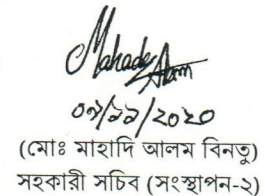 Mahade Alam
০৩/১১/২০২০
(মোঃ মাহাদি আলম বিনতু)
সহকারী সচিব (সংস্থাপন-২)